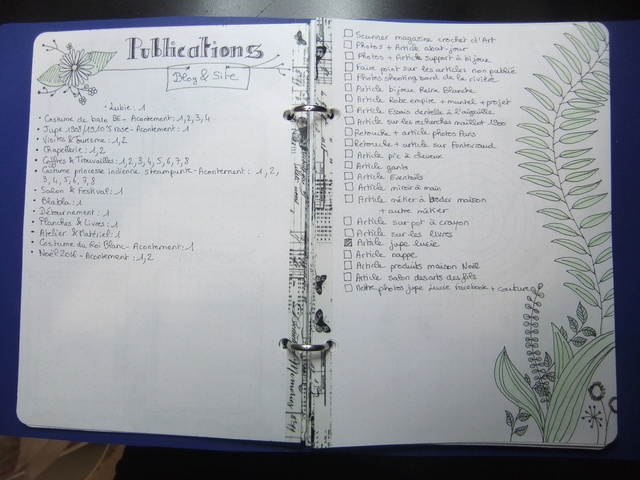 Publications
Blog & Site
- Lubie: 1
• Costume de bain BE - Acontement: 1,2,3,4
• Jupe 1908/1910's rose - Acontement: 1
• Visites & Tourisme: 1,2
• Chapellerie: 1,2
• Coffres & Trouvailles: 1,2,3,4,5,6,7,8
• Costume princesse indienne steampunk - Acontement: 1, 2,
3, 4, 5, 6, 7, 8
• Salon & Festival: 1
• Blabla: 1
• Détournement: 1
• Planches & Livres: 1
• Atelier & Matériel: 1
• Costume du Roi Blanc - Acontement: 1
• Noël 2016 - Acontement: 1,2
Scanner magazine crochet d'Art
Photos + Article abat-jour
Photos + Article support à bijoux
Faire point sur les articles non publié
Photos shooting bord de la rivière
Article bijoux Reine Blanche
Article Robe empire + mantel + projet
Article Essais dentelle à l'aiguille
Article sur les recherches maillot 1900
Retouche + article photos Paris
Retouche + article sur Fontevraud
Article pic à cheveux
Article gants
Article Eventails
Article miroir à main
Article métier à broder maison
+ autre métier
Article sur pot à crayon
Article sur les livres
Article jupe Lucie
Article nappe
Article produits maison Noël
Article salon des arts des fils
Mettre photos jupe Lucie facebook + couture